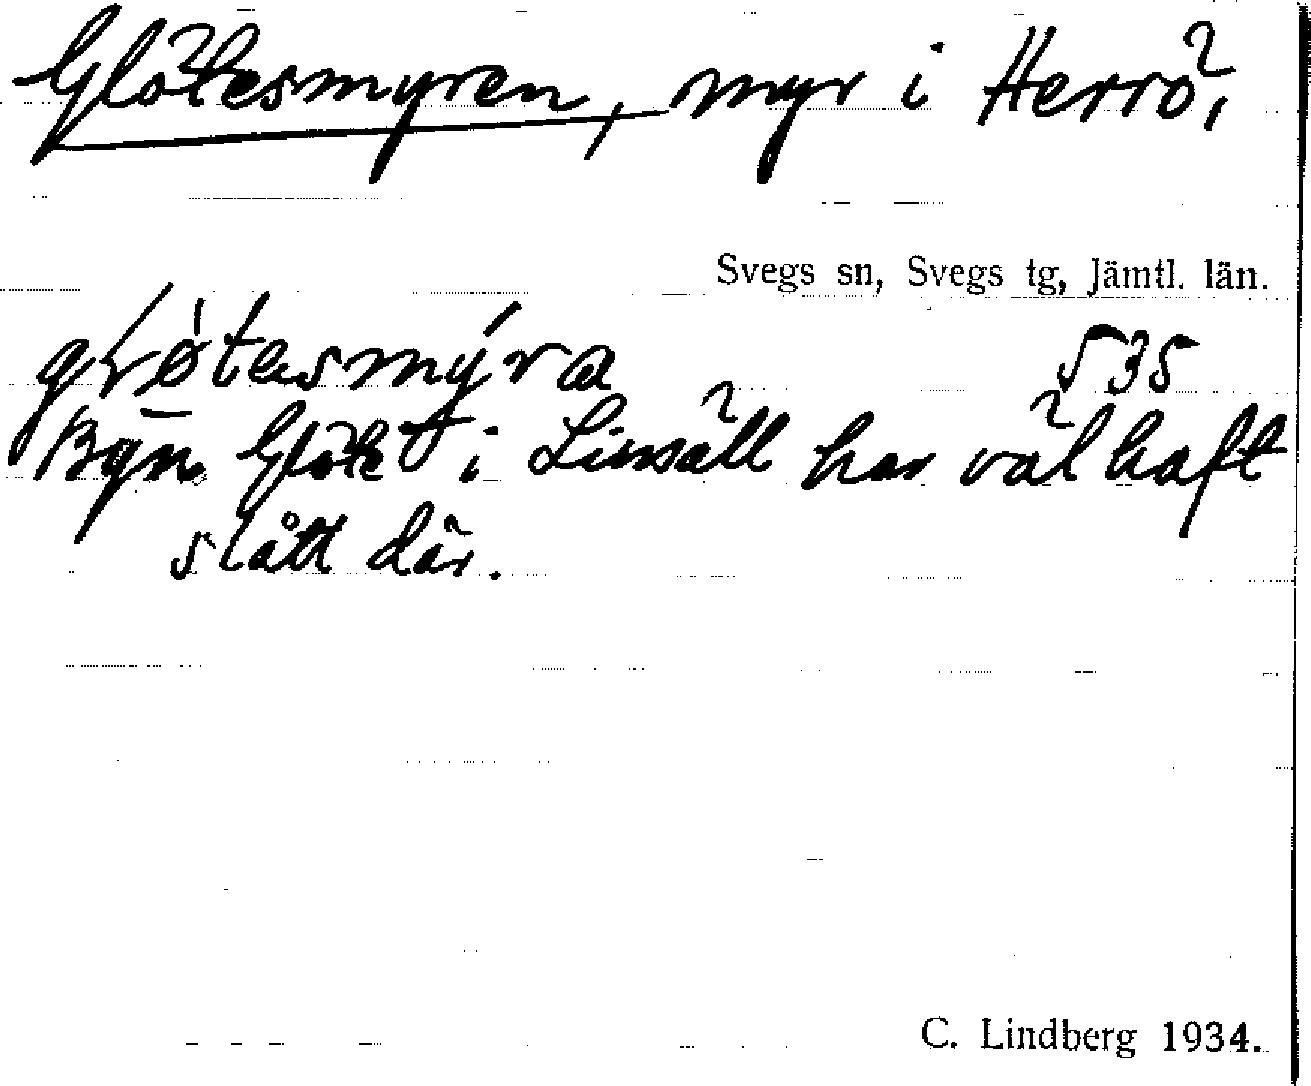 Glötesmyren, myr i Herrö,
Svegs sn, Svegs tg, Jämtl. län.
gløtesmýra 535
Byn Glöte i Linsäll har väl haft
slått där.
C. Lindberg 1934.